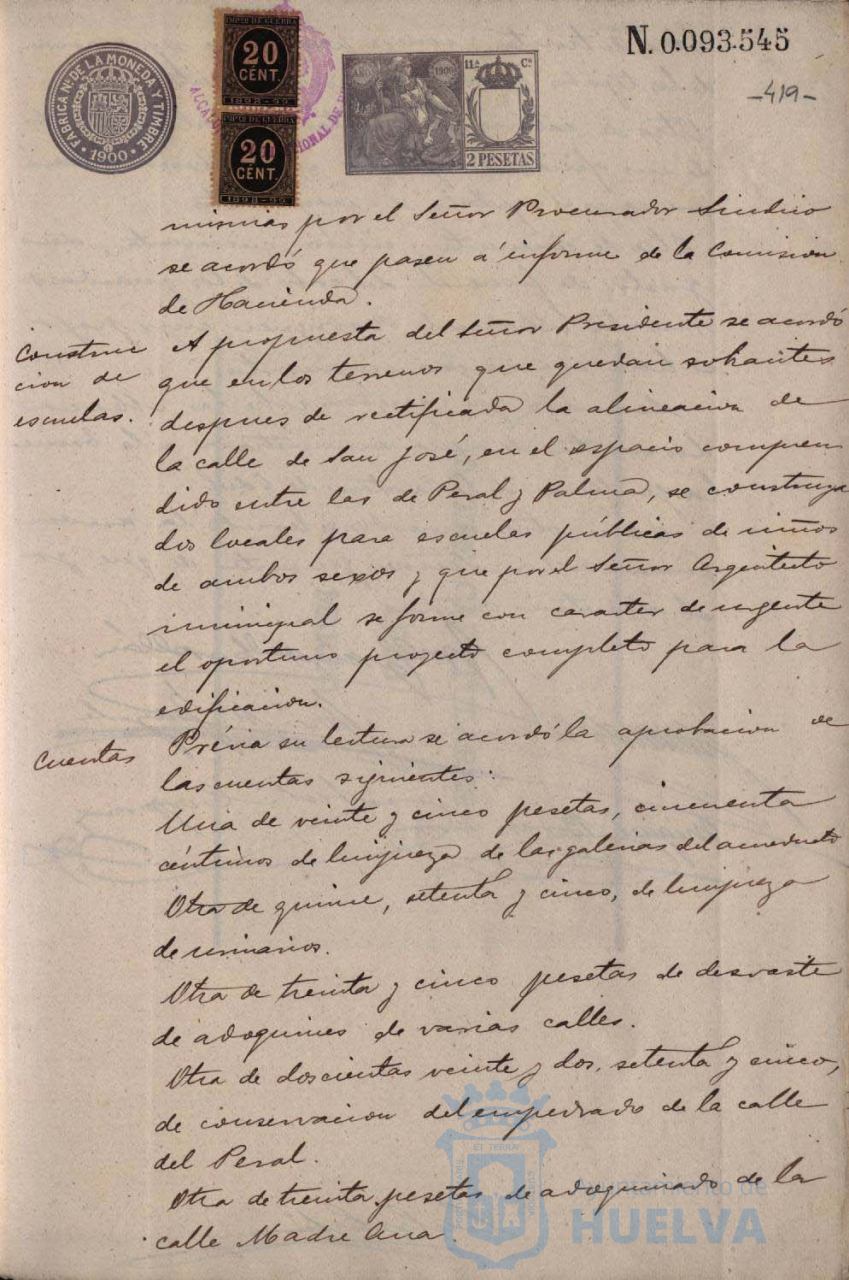 N. 0.093.545
-419-
FABRICA Nal DE LA MONEDA Y TIMBRE
1900
IMPTO DE GUERRA
20
CENT.
1898-99
IMPTO DE GUERRA
20
CENT.
1898-99
11ª Cª
AÑO 1900
2 PESETAS
mismas por el Señor Procurador Sindico
se acordó que pasen á informe de la Comision
de Hacienda.
Construc
cion de
escuelas.
A propuesta del Señor Presidente se acordó
que en los terrenos que quedan sobrantes
despues de rectificada la alineacion de
la calle de San José, en el espacio compren
dido entre las de Peral y Palma, se construya
dos locales para escuelas públicas de niños
de ambos sexos y que por el Señor Arquitecto
municipal se forme con caracter de urgente
el oportuno proyecto completo para la
edificacion.
Cuentas
Prévia su lectura se acordó la aprobacion de
las cuentas siguientes:
Una de veinte y cinco pesetas, cincuenta
céntimos de limpieza de las galerias del acueducto
Otra de quince, setenta y cinco, de limpieza
de urinarios.
Otra de treinta y cinco pesetas de desvaste
de adoquines de varias calles.
Otra de doscientas veinte y dos, setenta y cinco,
de conservacion del empedrado de la calle
del Peral.
Otra de treinta pesetas de adoquinado de la
calle Madre Ana.
Ayuntamiento de
HUELVA